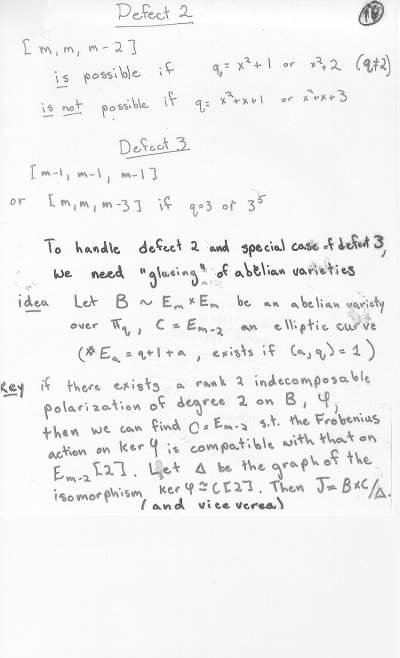 Defect 2
[m, m, m-2]
is possible if q = x²+1 or x²+2 (q≠2)
is not possible if q = x²+x+1 or x²+x+3
Defect 3
[m-1, m-1, m-1]
or [m, m, m-3] if q=3 or 3⁵
To handle defect 2 and special case of defect 3,
we need "glueing" of abelian varieties
idea Let B ~ Em × Em be an abelian variety
over 𝔽q, C = Em-2 an elliptic curve
(#Ea = q+1+a, exists if (a,q)=1)
Key if there exists a rank 2 indecomposable
polarization of degree 2 on B, φ,
then we can find C = Em-2 s.t. the Frobenius
action on ker φ is compatible with that on
Em-2[2]. Let Δ be the graph of the
isomorphism ker φ ≃ C[2]. Then J = B×C/Δ.
(and vice versa)